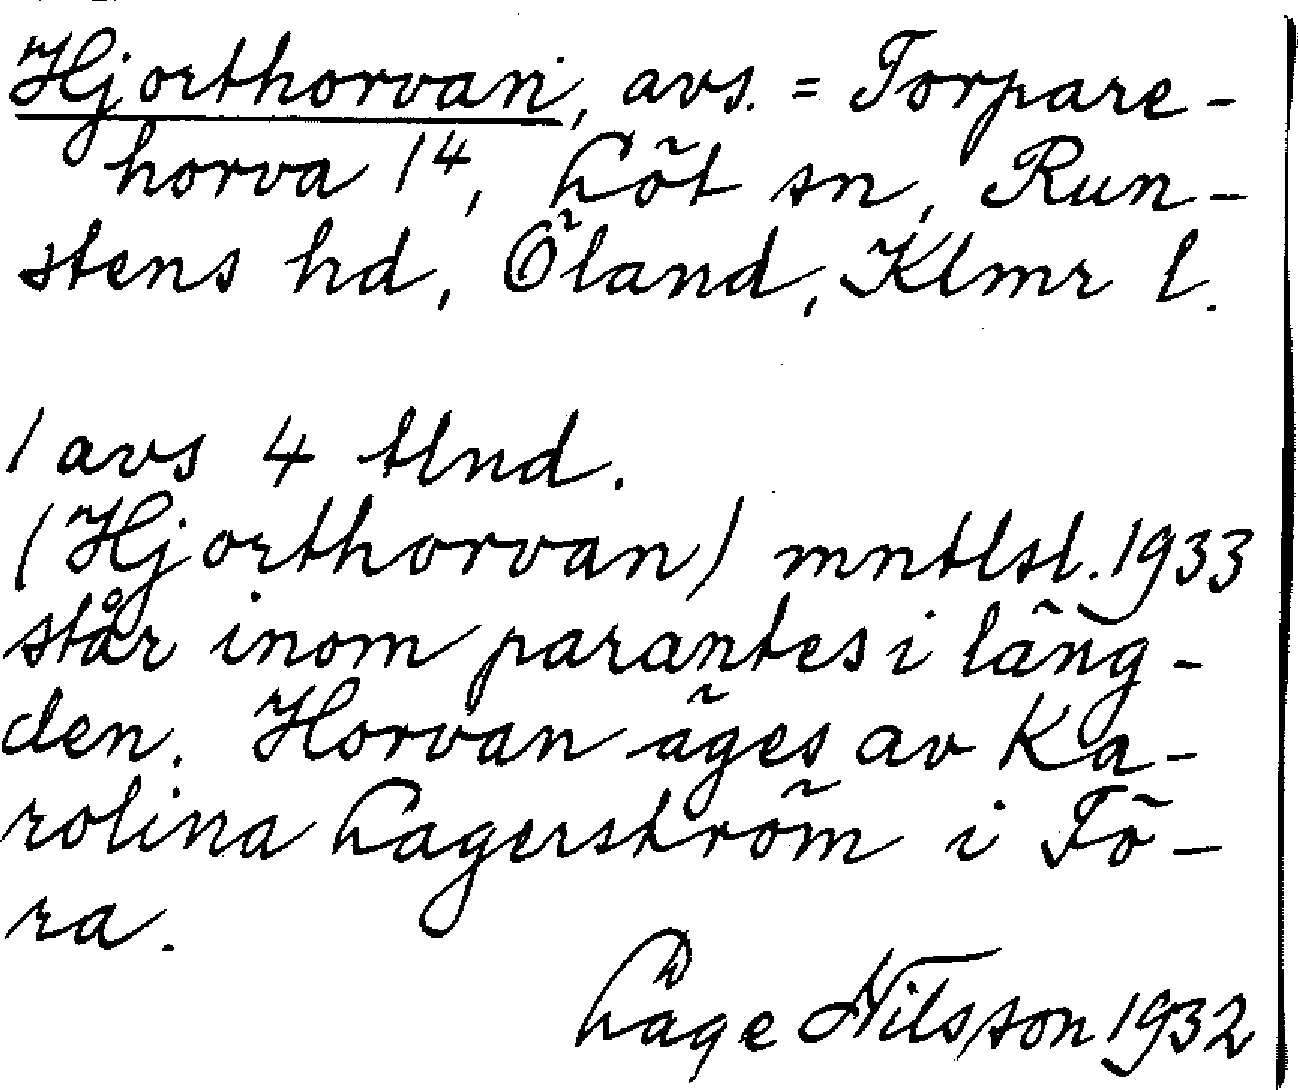 Hjorthorvan, avs. = Torpare-
horva 14, Löt sn, Run-
stens hd, Öland, Klmr l.
1 avs 4 tlnd.
(Hjorthorvan) mntlsl. 1933
står inom parantes i läng-
den. Horvan äges av Ka-
rolina Lagerström i Tö-
ra.
Lage Nilsson 1932